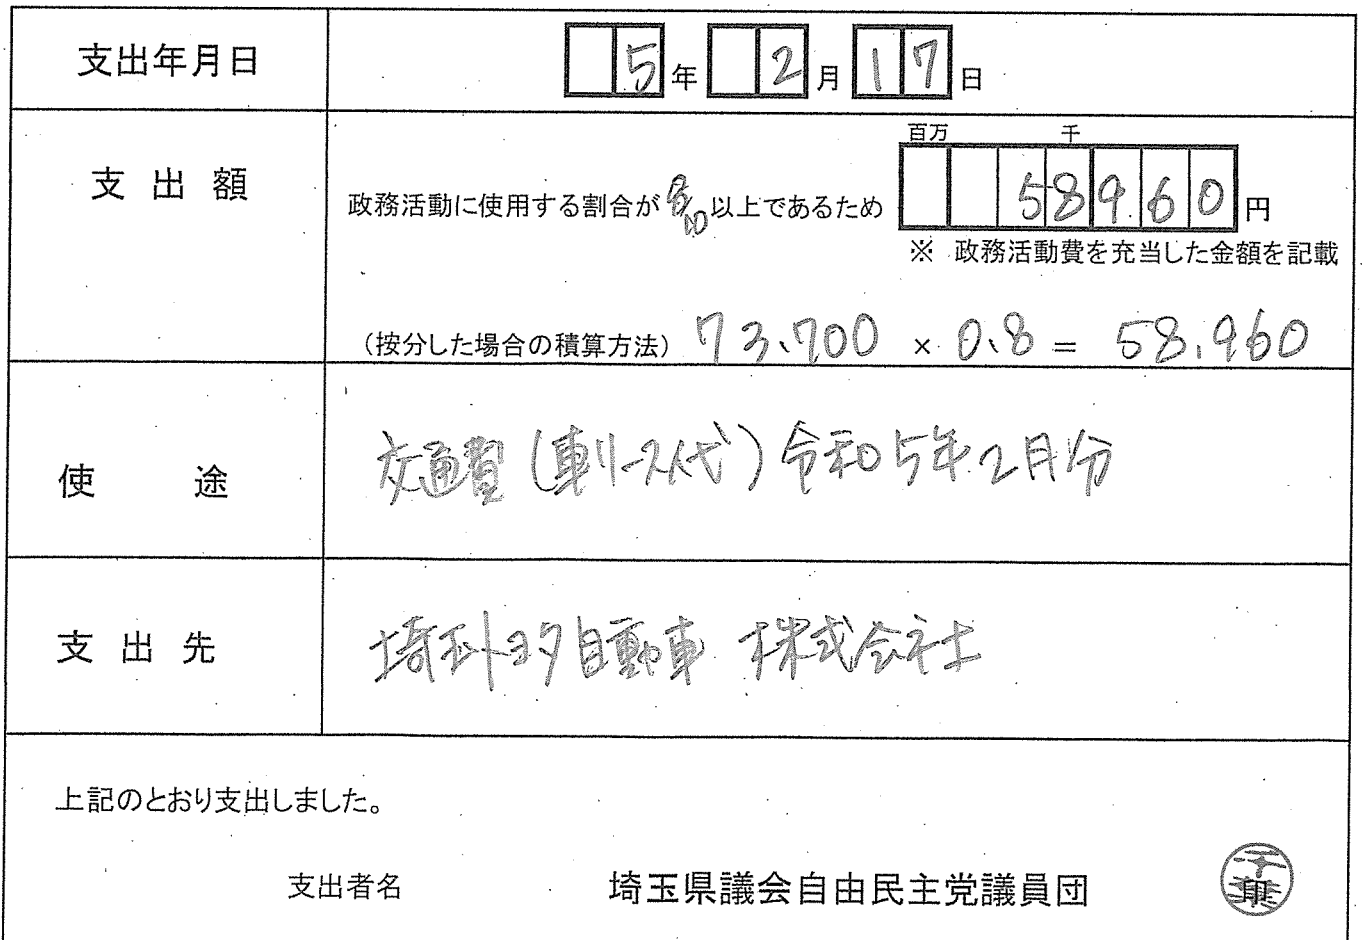 支出年月日 5年 2月 17日
百万 千
支出額 政務活動に使用する割合が8/10以上であるため 58960円
※ 政務活動費を充当した金額を記載
(按分した場合の積算方法) 73,700 × 0.8 = 58,960
使途 交通費(車リース代)令和5年2月分
支出先 埼玉トヨタ自動車 株式会社
上記のとおり支出しました。
支出者名 埼玉県議会自由民主党議員団 千葉 印